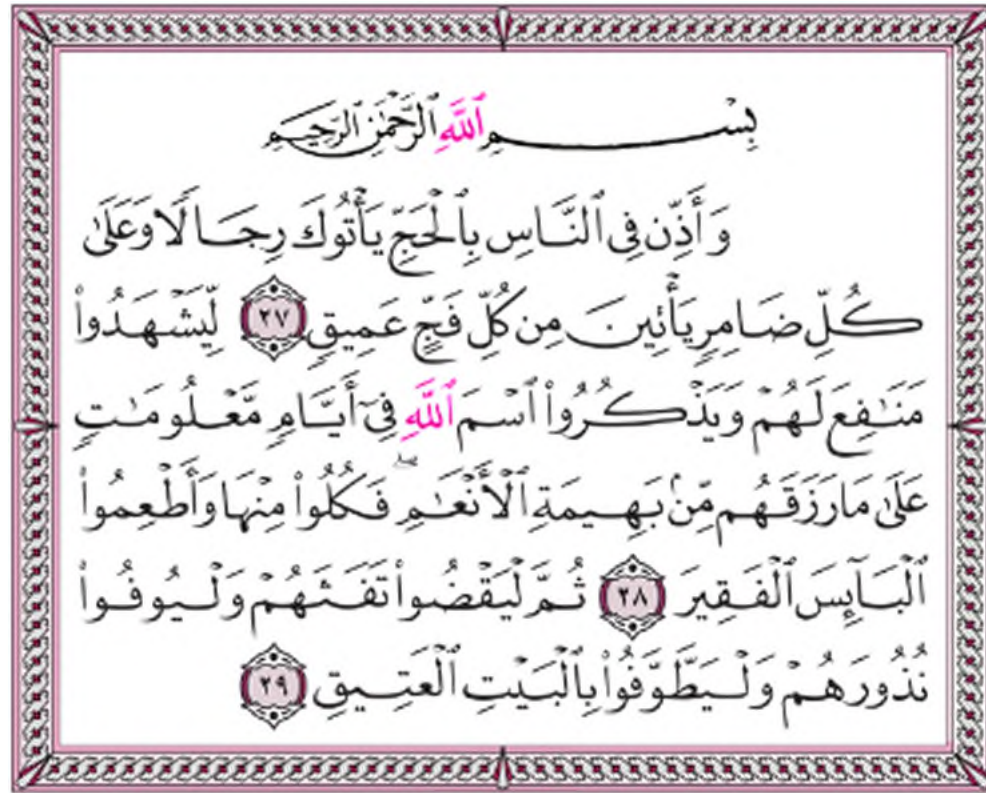 بِسْمِ ٱللَّهِ ٱلرَّحْمَٰنِ ٱلرَّحِيمِ
وَأَذِّن فِى ٱلنَّاسِ بِٱلْحَجِّ يَأْتُوكَ رِجَالًا وَعَلَىٰ
كُلِّ ضَامِرٍ يَأْتِينَ مِن كُلِّ فَجٍّ عَمِيقٍ ٢٧ لِّيَشْهَدُوا۟
مَنَـٰفِعَ لَهُمْ وَيَذْكُرُوا۟ ٱسْمَ ٱللَّهِ فِىٓ أَيَّامٍ مَّعْلُومَـٰتٍ
عَلَىٰ مَا رَزَقَهُم مِّنۢ بَهِيمَةِ ٱلْأَنْعَـٰمِ ۖ فَكُلُوا۟ مِنْهَا وَأَطْعِمُوا۟
ٱلْبَآئِسَ ٱلْفَقِيرَ ٢٨ ثُمَّ لْيَقْضُوا۟ تَفَثَهُمْ وَلْيُوفُوا۟
نُذُورَهُمْ وَلْيَطَّوَّفُوا۟ بِٱلْبَيْتِ ٱلْعَتِيقِ ٢٩